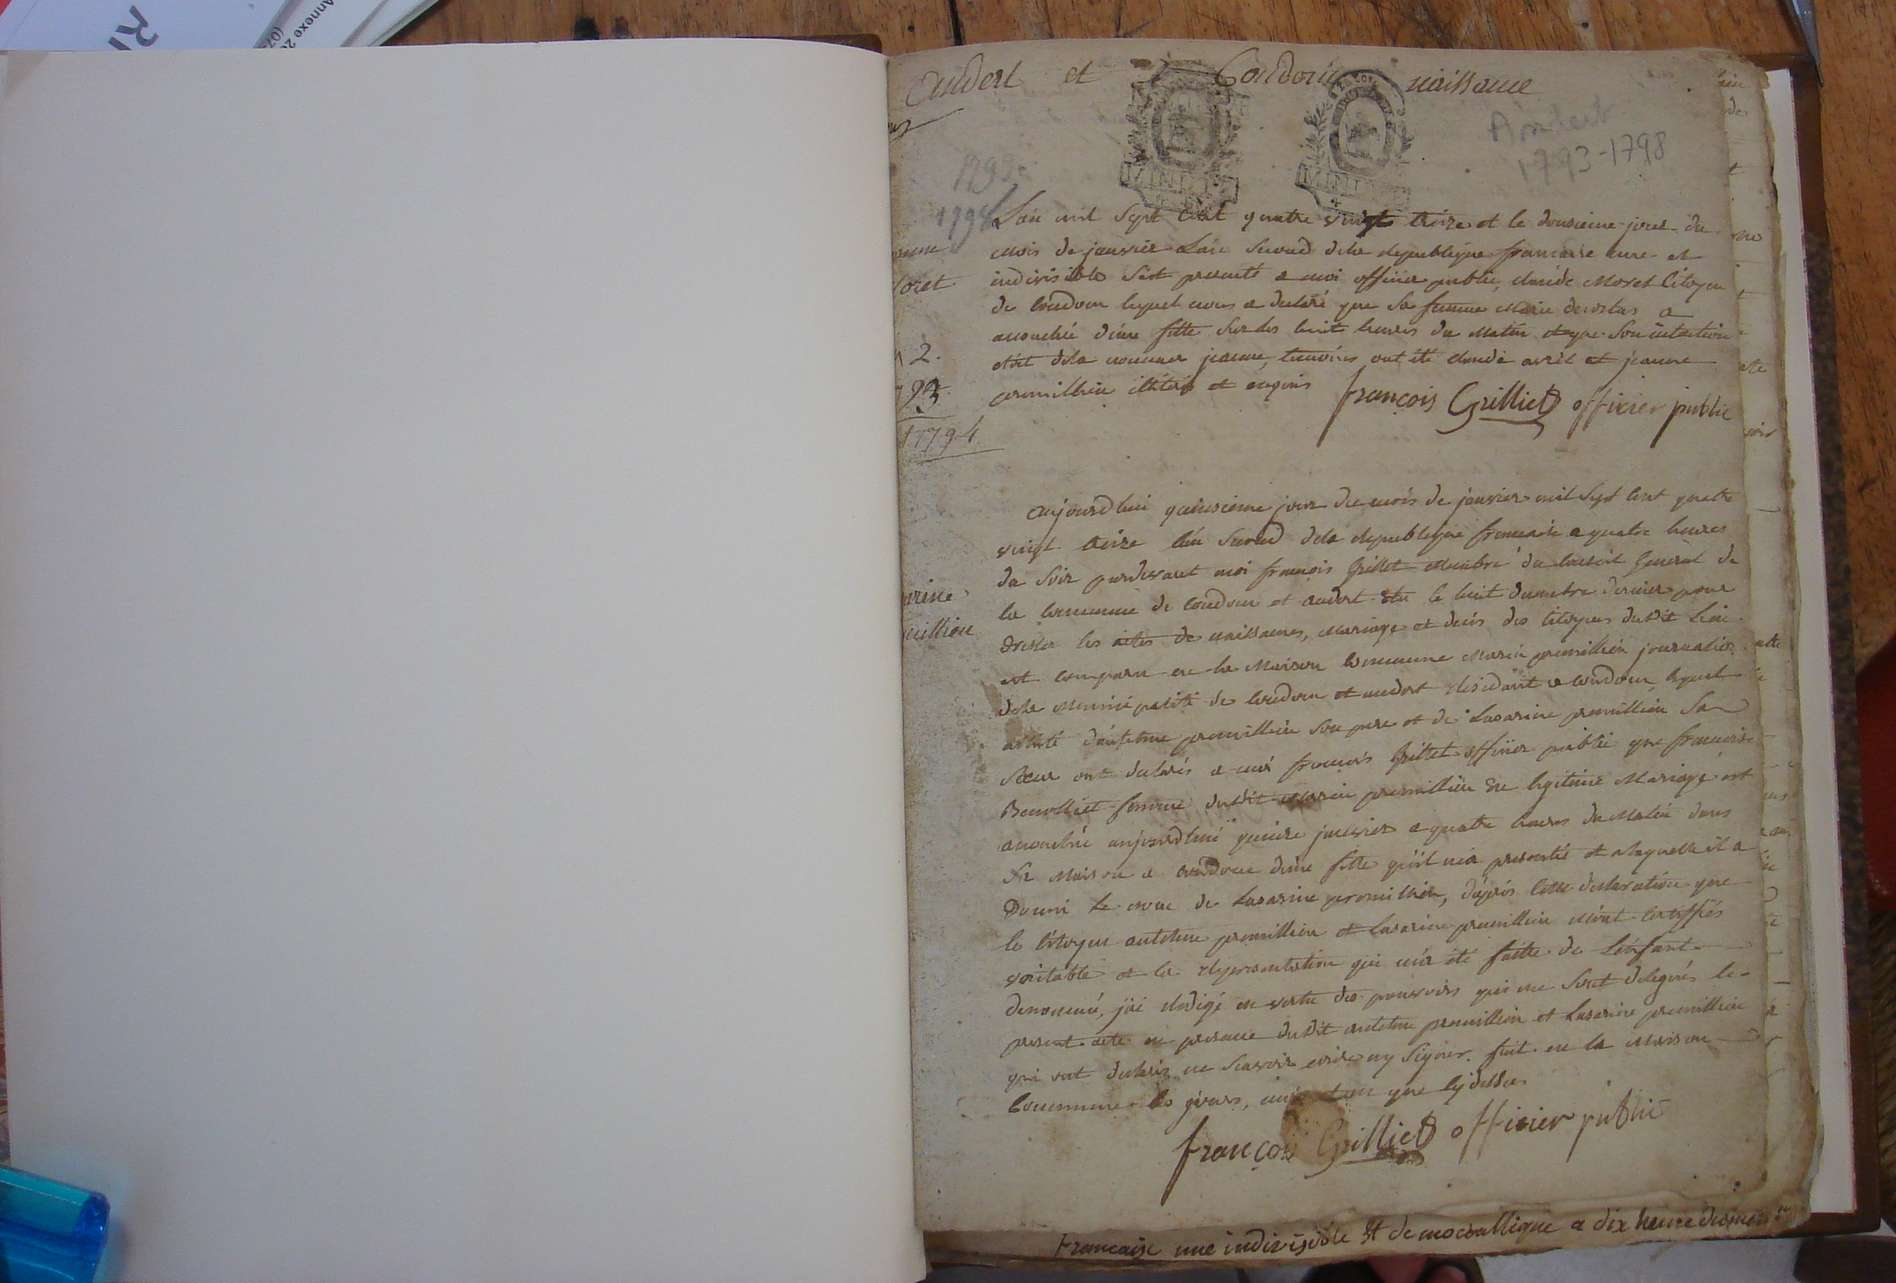 Andert et Condon naissance
Andert
1793-1798
1793-
1798
Lan mil sept cent quatre vingt treize et le dousieme jour du
mois de janvier Lan second dela republique francaise une et
indivisible sest presenté a moi officier public, claude Moret Citoyen
de Condon lequel nous a declaré que sa femme Marie a
accouché dune fille sur les huit heures du Matin et que son intention
etoit dela nommer jeanne, temoins ont été claude et jeanne
premillieu illiteré et enquis
françois Grilliet officier public
oret
2.
93
1794
aujourdhui quinsieme jour du mois de janvier mil sept cent quatre
vingt treize lan second dela republique francaise a quatre heures
du soir pardevant moi francois Grillet Membre du conseil General de
la commune de Condon et andert elu le huit decembre dernier pour
dresser les actes de naissances, mariage et decés des citoyens dudit lieu
est comparu en la Maison commune Marin premillieu journalier
dela municipalité de Condon et andert residant a Condon lequel
assisté dantelme premillieu son pere et de Lasarine premillieu sa
sœur ont declarés a moi francois Grillet officier public que francoise
femme dudit Marin premillieu en legitime Mariage est
accouchée aujourdhui quinze janvier a quatre heures du Matin dans
sa Maison a Condon dune fille quil ma presenté et a laquelle il a
donné le nom de Lasarine premillieu, dapres cette declaration que
le Citoyen antelme premillieu et Lasarine premillieu mont certiffiés
veritable et la representation qui ma été faitte de Lenfant
denommé, jai redigé en vertu des pouvoirs qui me sont delegués le
present acte en presence dudit antelme premillieu et Lasarine premillieu
qui ont declarés ne scavoir ecrire ny signer. fait en la Maison
Commune les jours, mois et an que cy dessus
arine
millieu
françois Grilliet officier public
Francaise une indivisible et democratique a dix heure du